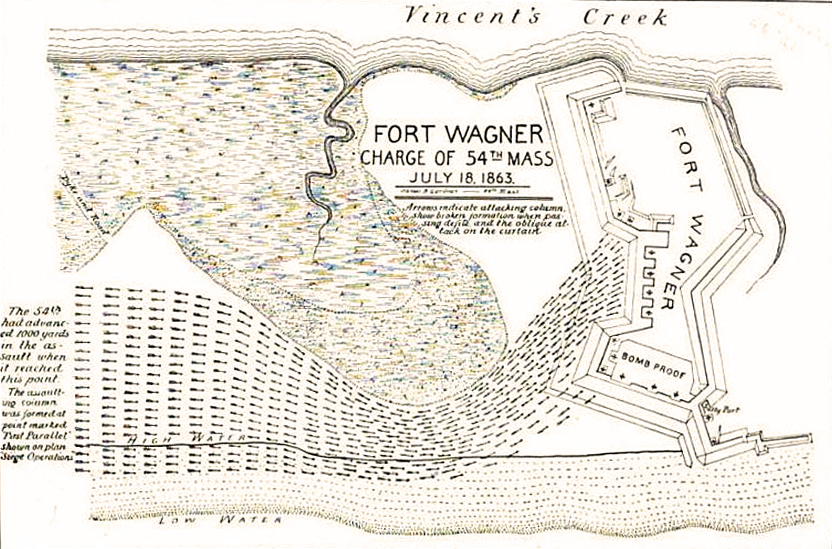 Vincent's Creek
FORT WAGNER
CHARGE OF 54TH MASS
JULY 18, 1863.
Arrows indicate attacking column,
show broken formation when pas-
sing defile and the oblique at-
tack on the curtain
FORT WAGNER
BOMB PROOF
Sally Port
Dyke and Road
The 54th
had advanc-
ed 1000 yards
in the as-
sault when
it reached
this point.
The assault-
ing column
was formed at
point marked
"First Parallel"
shown on plan
Siege Operations
HIGH WATER
LOW WATER